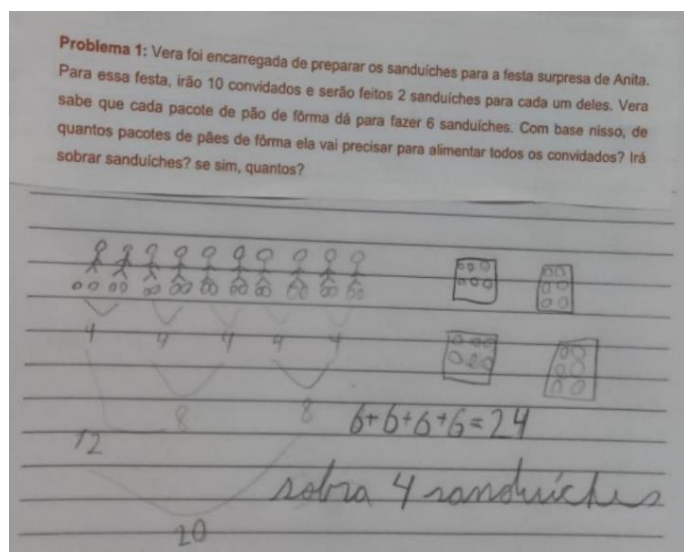 Problema 1: Vera foi encarregada de preparar os sanduíches para a festa surpresa de Anita.
Para essa festa, irão 10 convidados e serão feitos 2 sanduíches para cada um deles. Vera
sabe que cada pacote de pão de fôrma dá para fazer 6 sanduíches. Com base nisso, de
quantos pacotes de pães de fôrma ela vai precisar para alimentar todos os convidados? Irá
sobrar sanduíches? se sim, quantos?
4 4 4 4 4
8 8
6+6+6+6=24
12
sobra 4 sanduíches
20